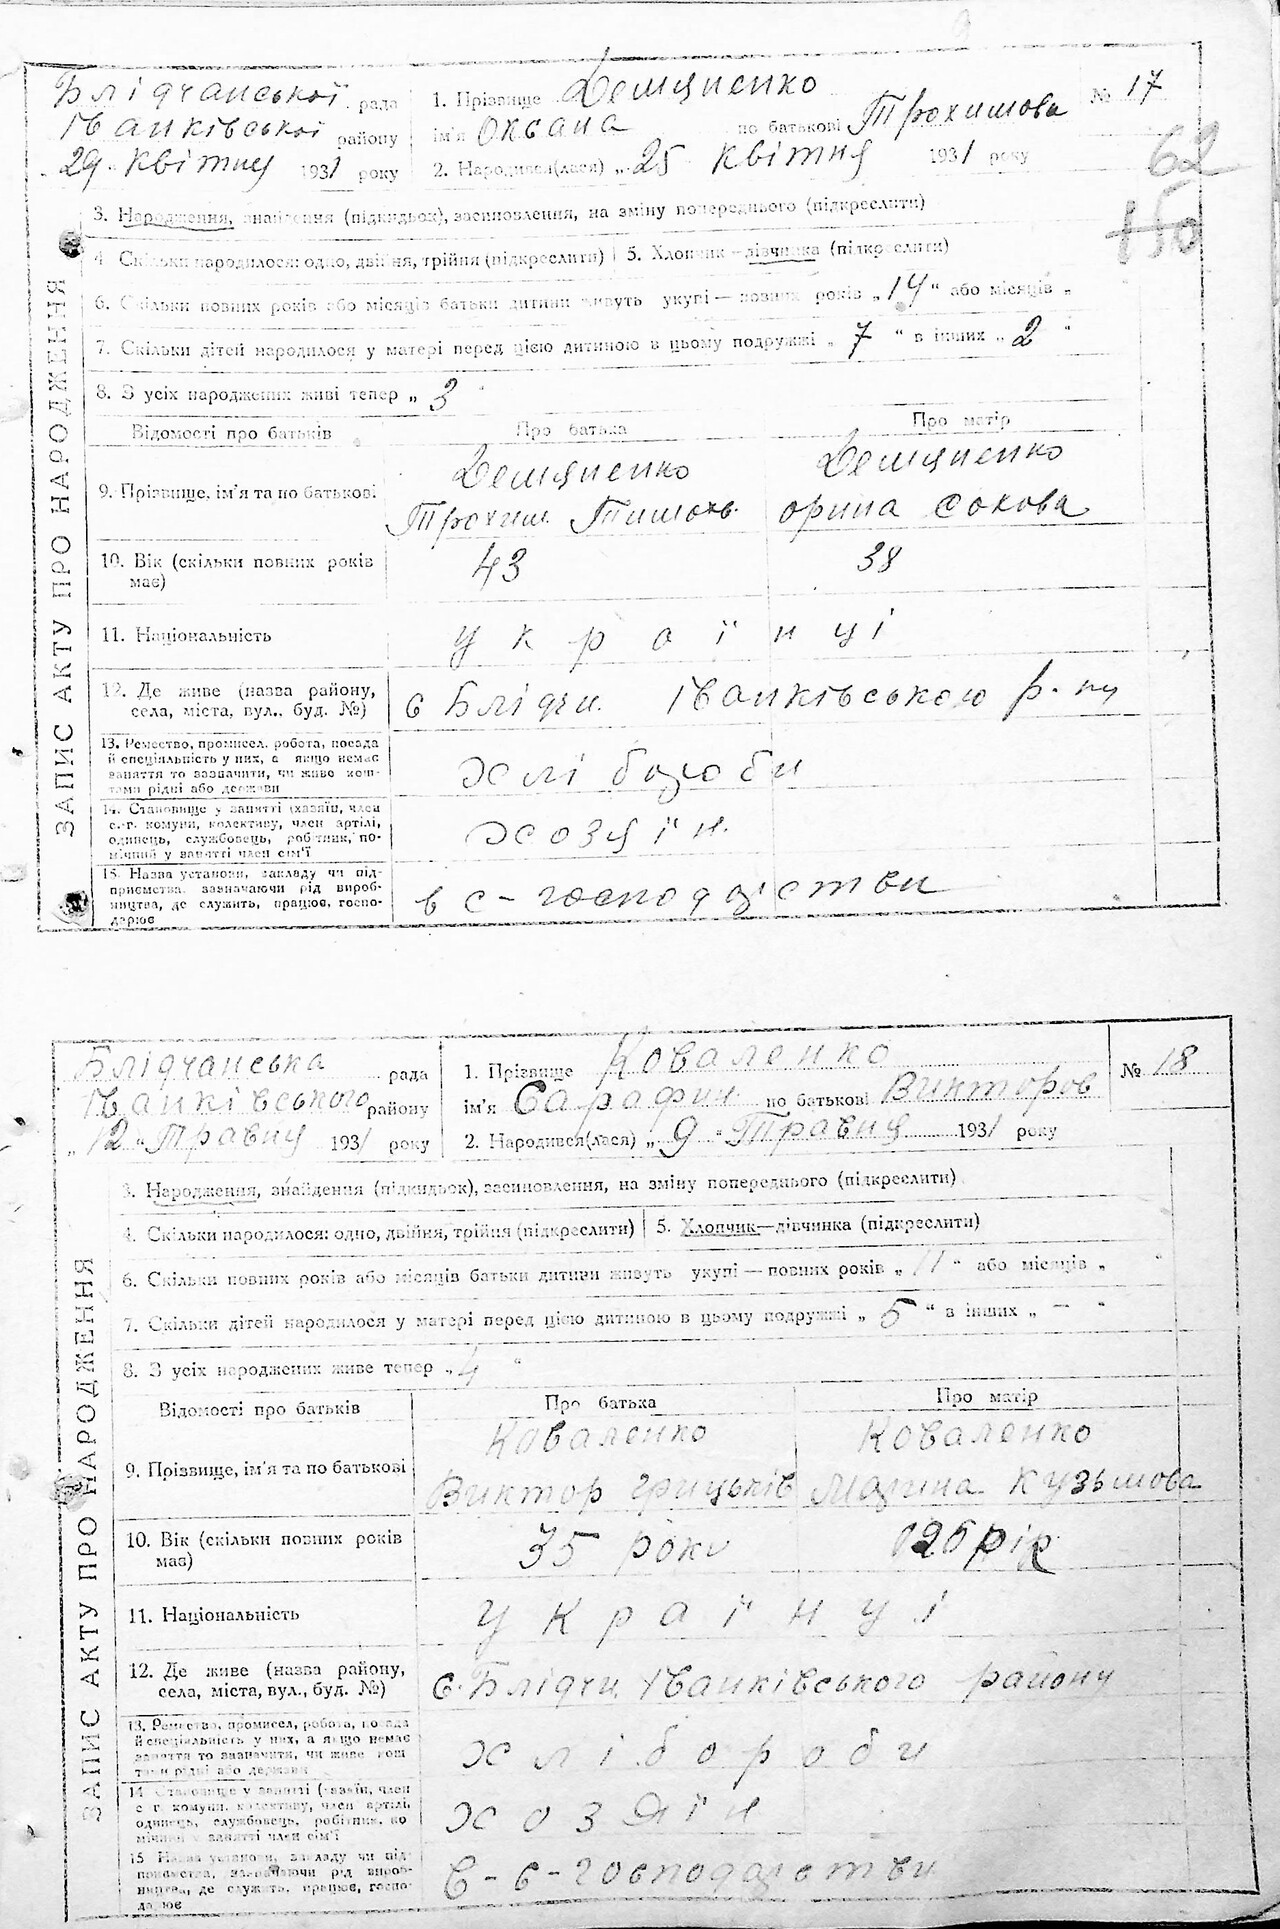 ЗАПИС АКТУ ПРО НАРОДЖЕННЯ
Блідчанської рада
Іванківської району
29 квітня 1931 року
1. Прізвище Демяненко
ім'я Оксана по батькові Трохимова
2. Народився(лася) „ 25 квітня 1931 року
№ 17
62
150
3. Народження, знайдення (підкидьок), засиновлення, на зміну попереднього (підкреслити)
4. Скільки народилося: одно, двійня, трійня (підкреслити) 5. Хлопчик—дівчинка (підкреслити)
6. Скільки повних років або місяців батьки дитини живуть укупі — повних років „ 14 " або місяців „
7. Скільки дітей народилося у матері перед цією дитиною в цьому подружжі „ 7 " в інших „ 2 "
8. З усіх народжених живі тепер „ 3 "
Відомості про батьків Про батька Про матір
9. Прізвище, ім'я та по батькові
Демяненко Демяненко
Трохим Тимохв. орина Сокова
10. Вік (скільки повних років має) 43 38
11. Національність українці
12. Де живе (назва району, села, міста, вул., буд. №) с Блідчи Іванківською р-ну
13. Ремество, промисел, робота, посада
й спеціяльність у них, а якщо немає
заняття то зазначити, чи живе кош-
тами рідні або держави
хлібороби
14. Становище у занятті (хазяїн, член
с.-г. комуни, колективу, член артілі,
одинець, службовець, робітник, по-
мічний у занятті член сім'ї
хозяїн
15. Назва установи, закладу чи під-
приємства, зазначаючи рід вироб-
ництва, де служить, працює, госпо-
дарює
в с-господарстви
ЗАПИС АКТУ ПРО НАРОДЖЕННЯ
Блідчанська рада
Іванківського району
„12" Травня 1931 року
1. Прізвище Коваленко
ім'я Сарафин по батькові Викторов
2. Народився(лася) „ 9 " Травня 1931 року
№ 18
3. Народження, знайдення (підкидьок), засиновлення, на зміну попереднього (підкреслити)
4. Скільки народилося: одно, двійня, трійня (підкреслити) 5. Хлопчик—дівчинка (підкреслити)
6. Скільки повних років або місяців батьки дитини живуть укупі — повних років „ 11 " або місяців „ "
7. Скільки дітей народилося у матері перед цією дитиною в цьому подружжі „ 5 " в інших „ — "
8. З усіх народжених живе тепер „ 4 "
Відомості про батьків Про батька Про матір
9. Прізвище, ім'я та по батькові
Коваленко Коваленко
Виктор Грицьків Марина Кузьмова
10. Вік (скільки повних років має) 35 роки рік
11. Національність українці
12. Де живе (назва району, села, міста, вул., буд. №) с. Блідчи Іванківського району
13. Ремество, промисел, робота, посада
й спеціяльність у них, а якщо немає
заняття то зазначити, чи живе кош
тами рідні або держави
хлібороби
14 Становище у занятті (хазяїн, член
с г. комуни, колективу, член артілі,
одинець, службовець, робітник, по
мічний у занятті член сім'ї
хозяїн
15 Назва установи, закладу чи під-
приємства, зазначаючи рід вироб-
ництва, де служить, працює, госпо-
дарює
в-с-господарстви